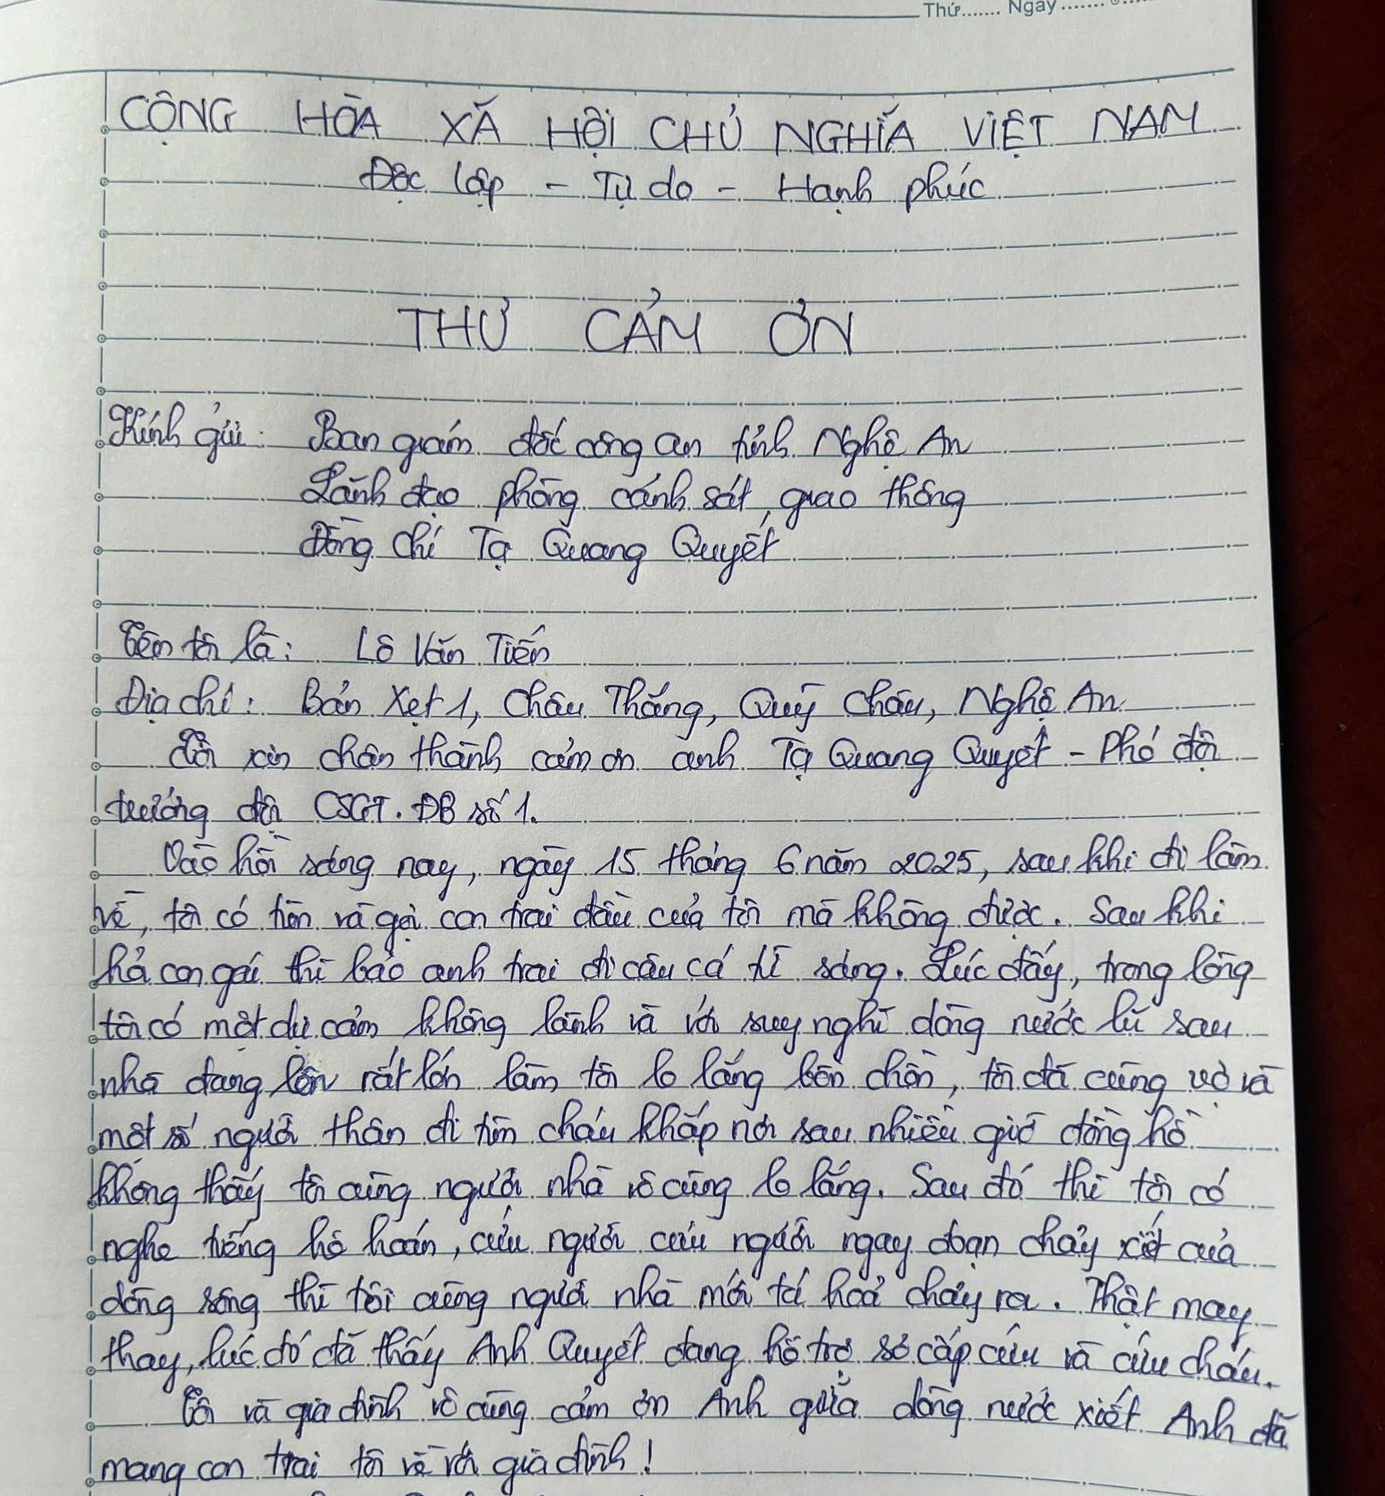 Thứ....... Ngày .......
CỘNG HÒA XÃ HỘI CHỦ NGHĨA VIỆT NAM
Độc lập - Tự do - Hạnh phúc
THƯ CẢM ƠN
Kính gửi: Ban giám đốc công an tỉnh Nghệ An
Lãnh đạo phòng cảnh sát giao thông
Đồng chí Tạ Quang Quyết
Tên tôi là: Lô Văn Tiến
Địa chỉ: Bản Xẹt 1, Châu Thắng, Quỳ Châu, Nghệ An
Tôi xin chân thành cảm ơn anh Tạ Quang Quyết - Phó đội
trưởng đội CSGT. ĐB số 1.
Vào hồi sáng nay, ngày 15 tháng 6 năm 2025, sau khi đi làm
về, tôi có tìm và gọi con trai đầu của tôi mà không được. Sau khi
hỏi con gái thì bảo anh trai đi câu cá từ sáng. Lúc đấy, trong lòng
tôi có một dự cảm không lành và với suy nghĩ dòng nước lũ sau
nhà đang lên rất lớn làm tôi lo lắng bồn chồn, tôi đã cùng vợ và
một số người thân đi tìm cháu khắp nơi sau nhiều giờ đồng hồ
không thấy tôi cùng người nhà vô cùng lo lắng. Sau đó thì tôi có
nghe tiếng hô hoán, cứu người cứu người ngay đoạn chảy xiết của
dòng sông thì tôi cùng người nhà mới tá hoả chạy ra. Thật may
thay, lúc đó đã thấy Anh Quyết đang hỗ trợ sơ cấp cứu và cứu cháu.
Tôi và gia đình vô cùng cảm ơn Anh giữa dòng nước xiết Anh đã
mang con trai tôi về với gia đình!